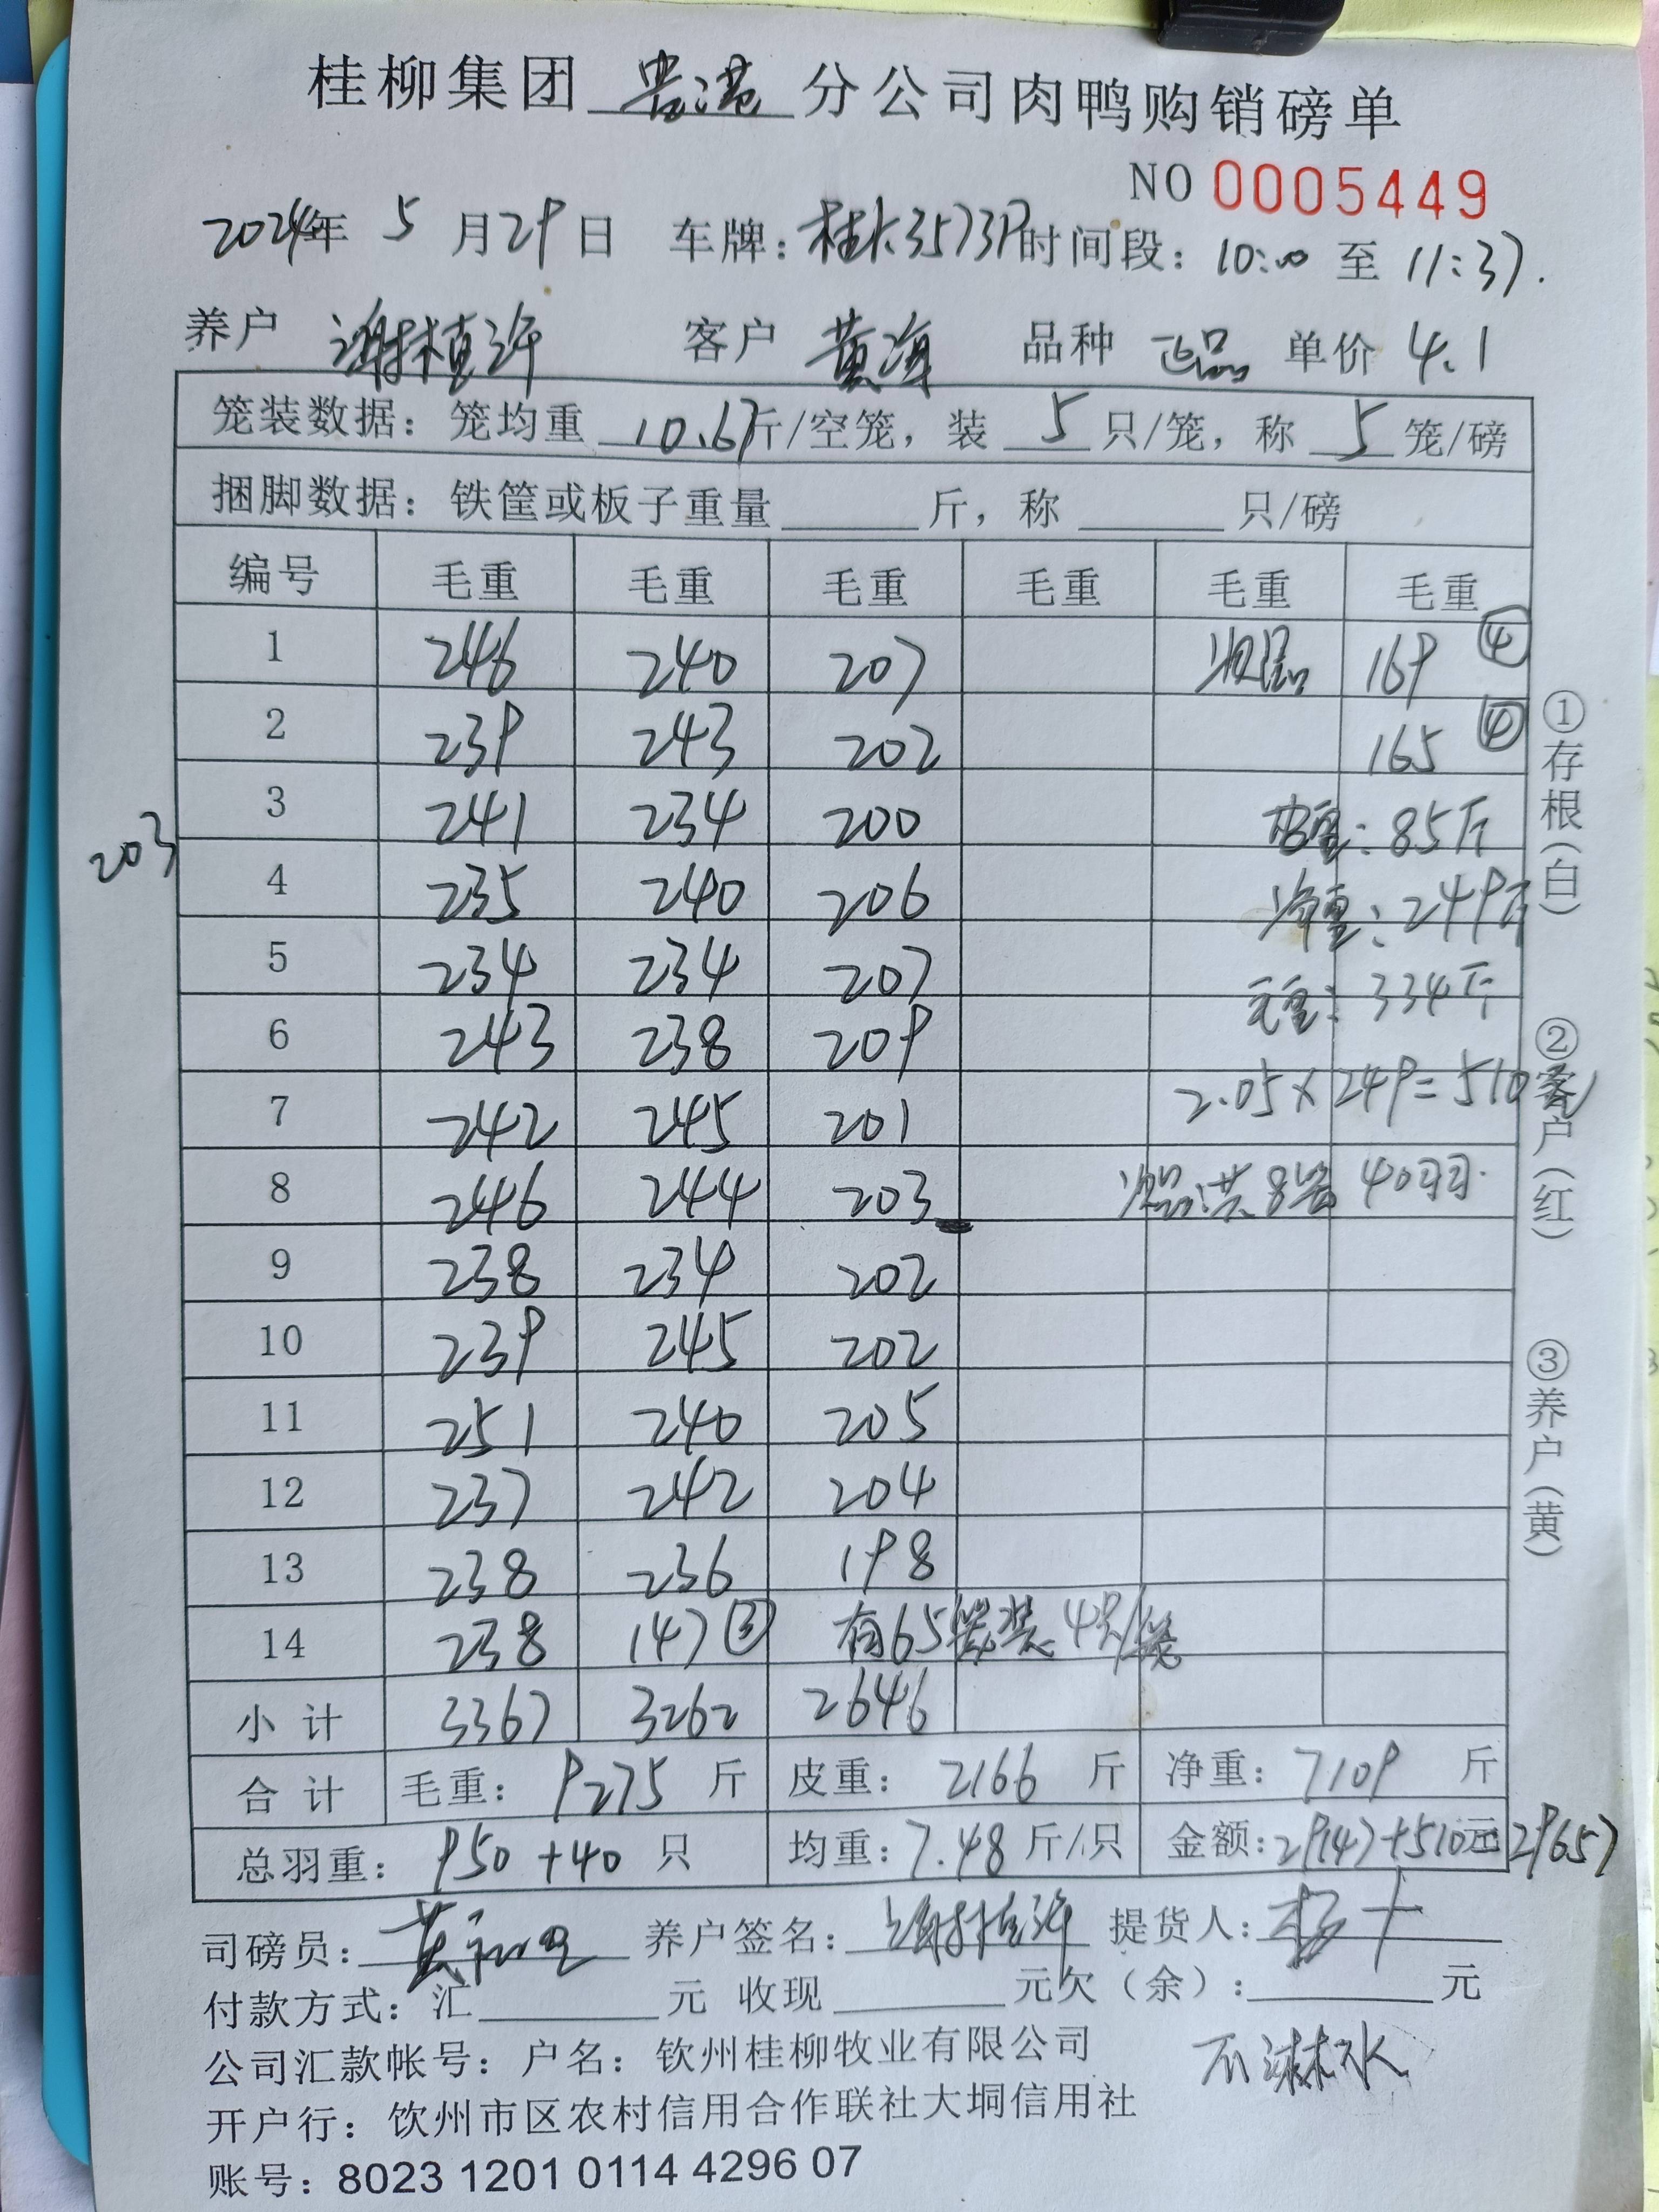 桂柳集团 贵港 分公司肉鸭购销磅单
NO 0005449
2024年 5 月29日 车牌：桂K3573P 时间段：10:00 至 11:37.
养户 谢植许 客户 黄海 品种 正品 单价 4.1
笼装数据：笼均重 10.67斤/空笼，装 5 只/笼，称 5 笼/磅
捆脚数据：铁筐或板子重量 斤，称 只/磅
编号 毛重 毛重 毛重 毛重 毛重 毛重
1 246 240 207 次品 169 ④
2 239 243 202 165 ④
3 241 234 200 皮重：85斤
203
4 235 240 206 净重：249斤
5 234 234 207 毛重：334斤
6 243 238 209
7 242 245 201 2.05×249=510元
8 246 244 203 次品：共8笼 40羽.
9 238 234 202
10 239 245 202
11 251 240 205
12 237 242 204
13 238 236 198
14 238 147③ 有65笼装4只/笼
小计 3367 3262 2646
合计 毛重：9275 斤 皮重：2166 斤 净重：7109 斤
总羽重：950+40 只 均重：7.48 斤/只 金额：29147+510元=29657
司磅员： 养户签名：谢植许 提货人：
付款方式：汇 元 收现 元欠（余）： 元
公司汇款帐号：户名：钦州桂柳牧业有限公司
不淋水
开户行：钦州市区农村信用合作联社大垌信用社
账号：8023 1201 0114 4296 07
①存根（白）
②客户（红）
③养户（黄）